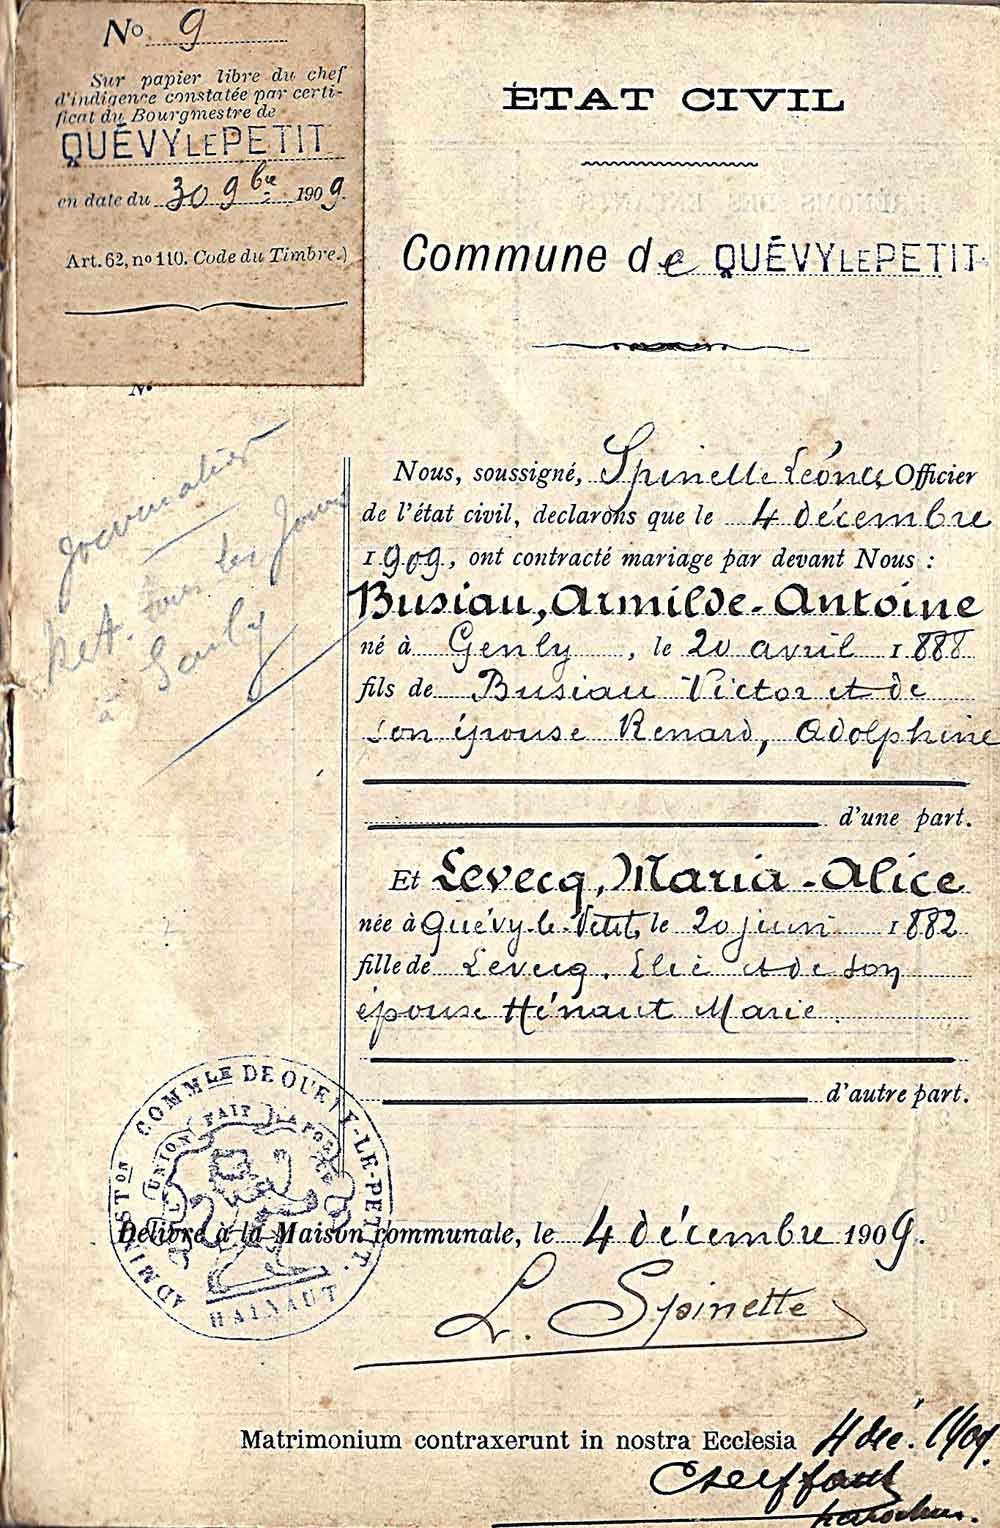 No 9
Sur papier libre du chef
d'indigence constatée par certi-
ficat du Bourgmestre de
QUÉVY LE PETIT
en date du 30 9bre 1909.
Art. 62, no 110. Code du Timbre.)
No
ÉTAT CIVIL
Commune de QUÉVY LE PETIT
Journalier
à
Nous, soussigné, Spinette Léonce, Officier
de l'état civil, déclarons que le 4 décembre
1909, ont contracté mariage par devant Nous :
Busiau, Armilde-Antoine
né à Genly, le 20 avril 1888
fils de Busiau Victor et de
son épouse Renard, Adolphine
d'une part.
Et Levecq, Maria-Alice
née à Quévy-le-Petit, le 20 juin 1882
fille de Levecq, Elie et de son
épouse Hénaut Marie
d'autre part.
ADMINISTon COMMLE DE QUÉVY-LE-PETIT.
L'UNION FAIT LA FORCE
HAINAUT
Délivré à la Maison communale, le 4 décembre 1909.
L. Spinette
Matrimonium contraxerunt in nostra Ecclesia 4 déc. 1909.
parochus.